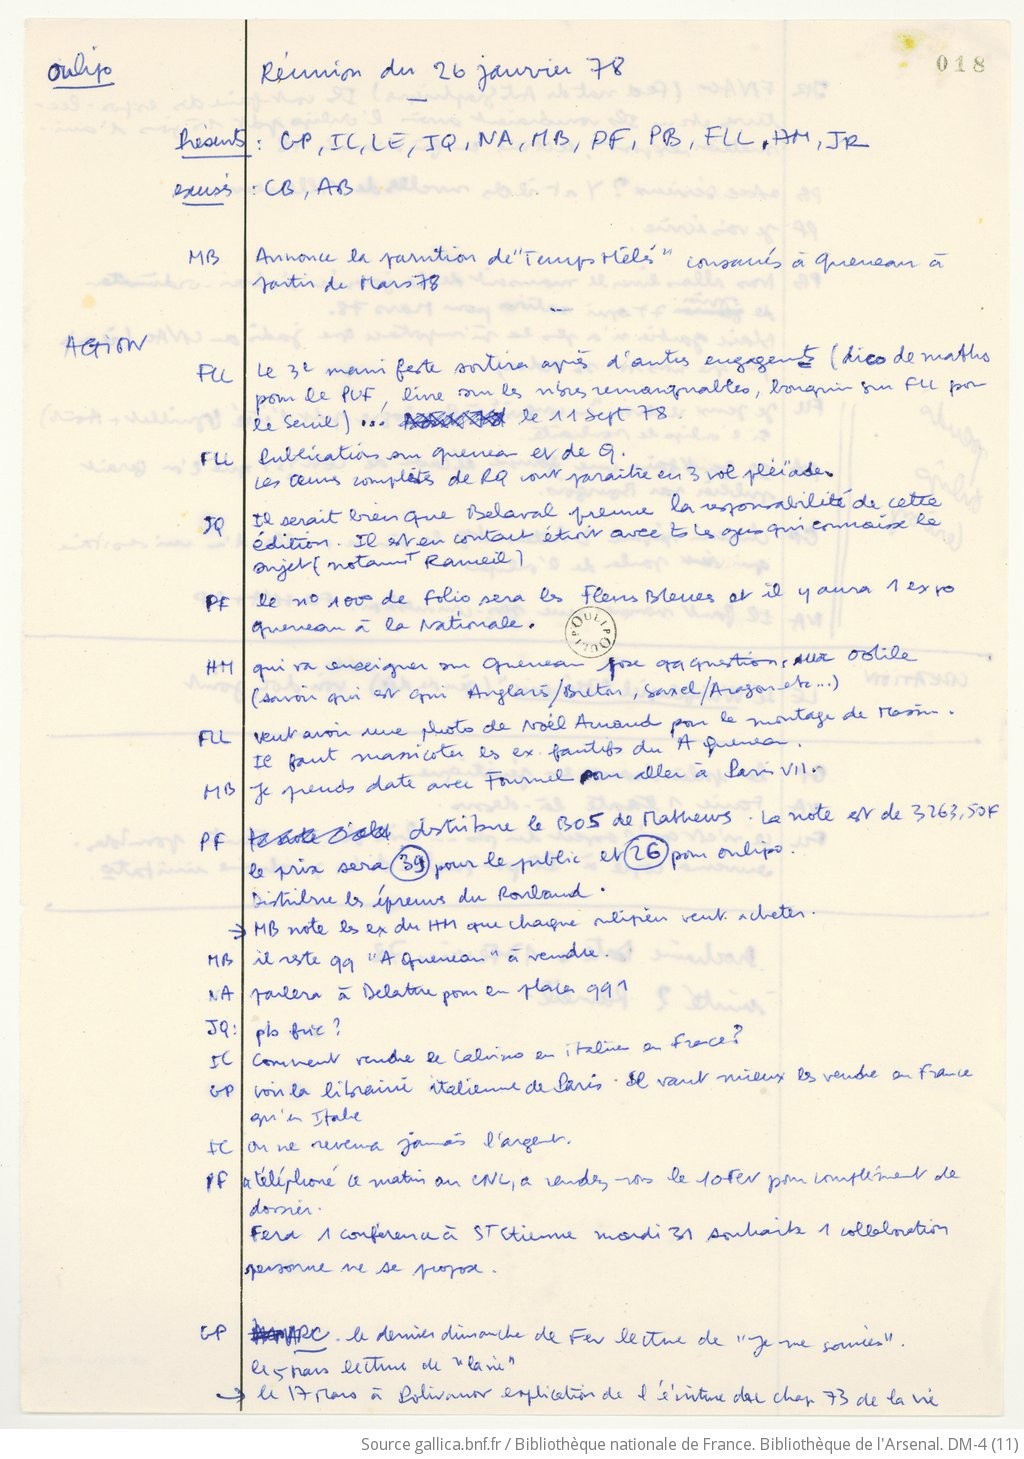 oulipo
018
Réunion du 26 janvier 78
Présents : GP, IC, LE, JQ, NA, MB, PF, PB, FLL, HM, JR
excusés : CB, AB
MB Annonce la parution de "Temps Mêlés" consacrés à Queneau à
partir de Mars 78
ACTION
FLL Le 3e manifeste sortira après d'autres engagements (dico de maths
pour le PUF, livre sur les nbres remarquables, bouquin sur FLL pour
le Seuil) ... le 11 Sept 78.
FLL Publications sur Queneau et de Q.
Les œuvres complètes de RQ vont paraître en 3 vol pléïades
JQ Il serait bien que Belaval prenne la responsabilité de cette
édition. Il est en contact étroit avec ts les gens qui connaisse le
sujet (notamt Rameil)
PF le n° 1000 de Folio sera les Fleurs Bleues et il y aura 1 expo
Queneau à la Nationale.
OULIPO OULIPO
HM qui va enseigner sur Queneau pose qq questions, sur Odile
(savoir qui est qui Anglarès/Breton, Saxel/Aragon etc...)
FLL veut avoir une photo de Noël Arnaud pour le montage de Massin.
Il faut massicoter les ex. fautifs du A Queneau.
MB Je prends date avec Fournel pour aller à Paris VII.
PF distribue le BO5 de Mathews. La note est de 3263,50F
le prix sera 39 pour le public et 26 pour oulipo.
Distribue les épreuves du Roubaud.
→ MB note les ex du HM que chaque oulipien veut acheter.
MB il reste qq "A Queneau" à vendre.
NA parlera à Delattre pour en placer qq 1
JQ: pb fric?
IC Comment vendre le Calvino en italien en France?
GP voir la librairie italienne de Paris. Il vaut mieux les vendre en France
qu'en Italie
IC On ne reverra jamais l'argent.
PF a téléphoné ce matin au CNL, a rendez-vous le 10 Fev pour complément de
dossier.
Fera 1 conférence à St Etienne mardi 31 souhaite 1 collaboration
personne ne se propose.
GP ARC. le dernier dimanche de Fev lecture de "Je me souviens".
le 5 mars lecture de "la vie"
→ le 17 Mars à Polivanov explication de l'écriture du chap 73 de la vie
Source gallica.bnf.fr / Bibliothèque nationale de France. Bibliothèque de l'Arsenal. DM-4 (11)